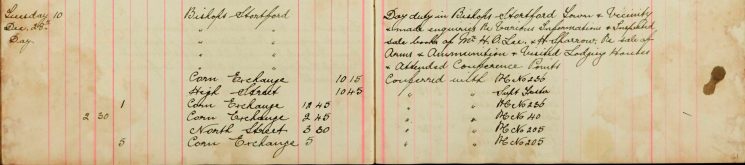 Tuesday 10 Bishops Stortford Day duty in Bishops Stortford Town & Vicinity
Dec. 28th " & made enquiries Re Various Informations & Inspected
Day. " sale books of Mr H. A. Lee, & H. Sparrow, Re sale of
" Arms & Ammunition & Visited Lodging Houses
" & Attended Conference Points
Corn Exchange 10 15 Conferred with PC No 236
High Street 10 45 " Supt
1 Corn Exchange 12 45 " PC No 236
2 30 Corn Exchange 2 45 " PC No 40
North Street 3 30 " PC No 205
5 Corn Exchange 5 " PC No 205